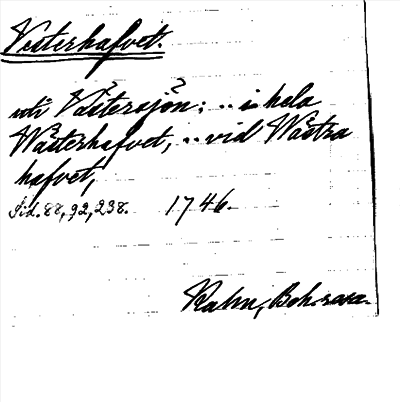 Vesterhafvet.
uti Västersjön: .. i hela
Wästerhafvet, .. vid Wästra
hafvet,
Sid. 88, 92, 238. 1746.
Kalm, Boh. resa.